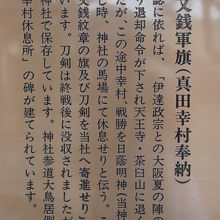 文銭軍旗（真田幸村奉納）
誌に依れば、「伊達政宗との大阪夏の陣の
退却命令が下され天王寺・茶臼山に退
だが、この途中幸村、戦勝を日蔭明神（当神
し時、神社の馬場にて休息せりと伝う。こ
文銭紋章の旗及び刀剣を当社へ寄進せり
います。刀剣は終戦後に没収されました
に依存して保存しています。神社参道大鳥居側
幸村休息所」の碑が建てられています。